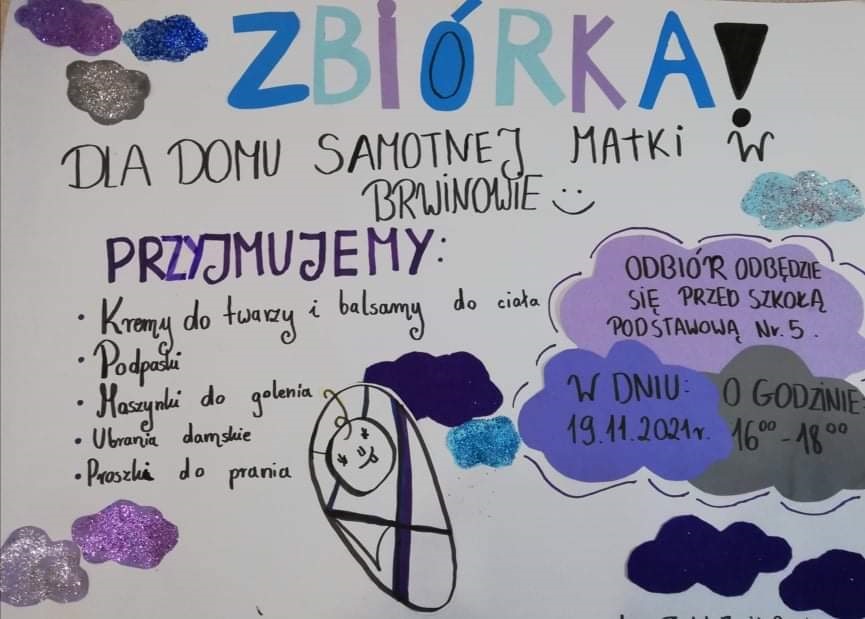 ZBIÓRKA!
DLA DOMU SAMOTNEJ MATKI W
BRWINOWIE :)
PRZYJMUJEMY:
• Kremy do twarzy i balsamy do ciała
• Podpaski
• Maszynki do golenia
• Ubrania damskie
• Proszki do prania
ODBIÓR ODBĘDZIE
SIĘ PRZED SZKOŁĄ
PODSTAWOWĄ Nr. 5.
W DNIU:
19.11.2021r.
O GODZINIE:
16⁰⁰-18⁰⁰